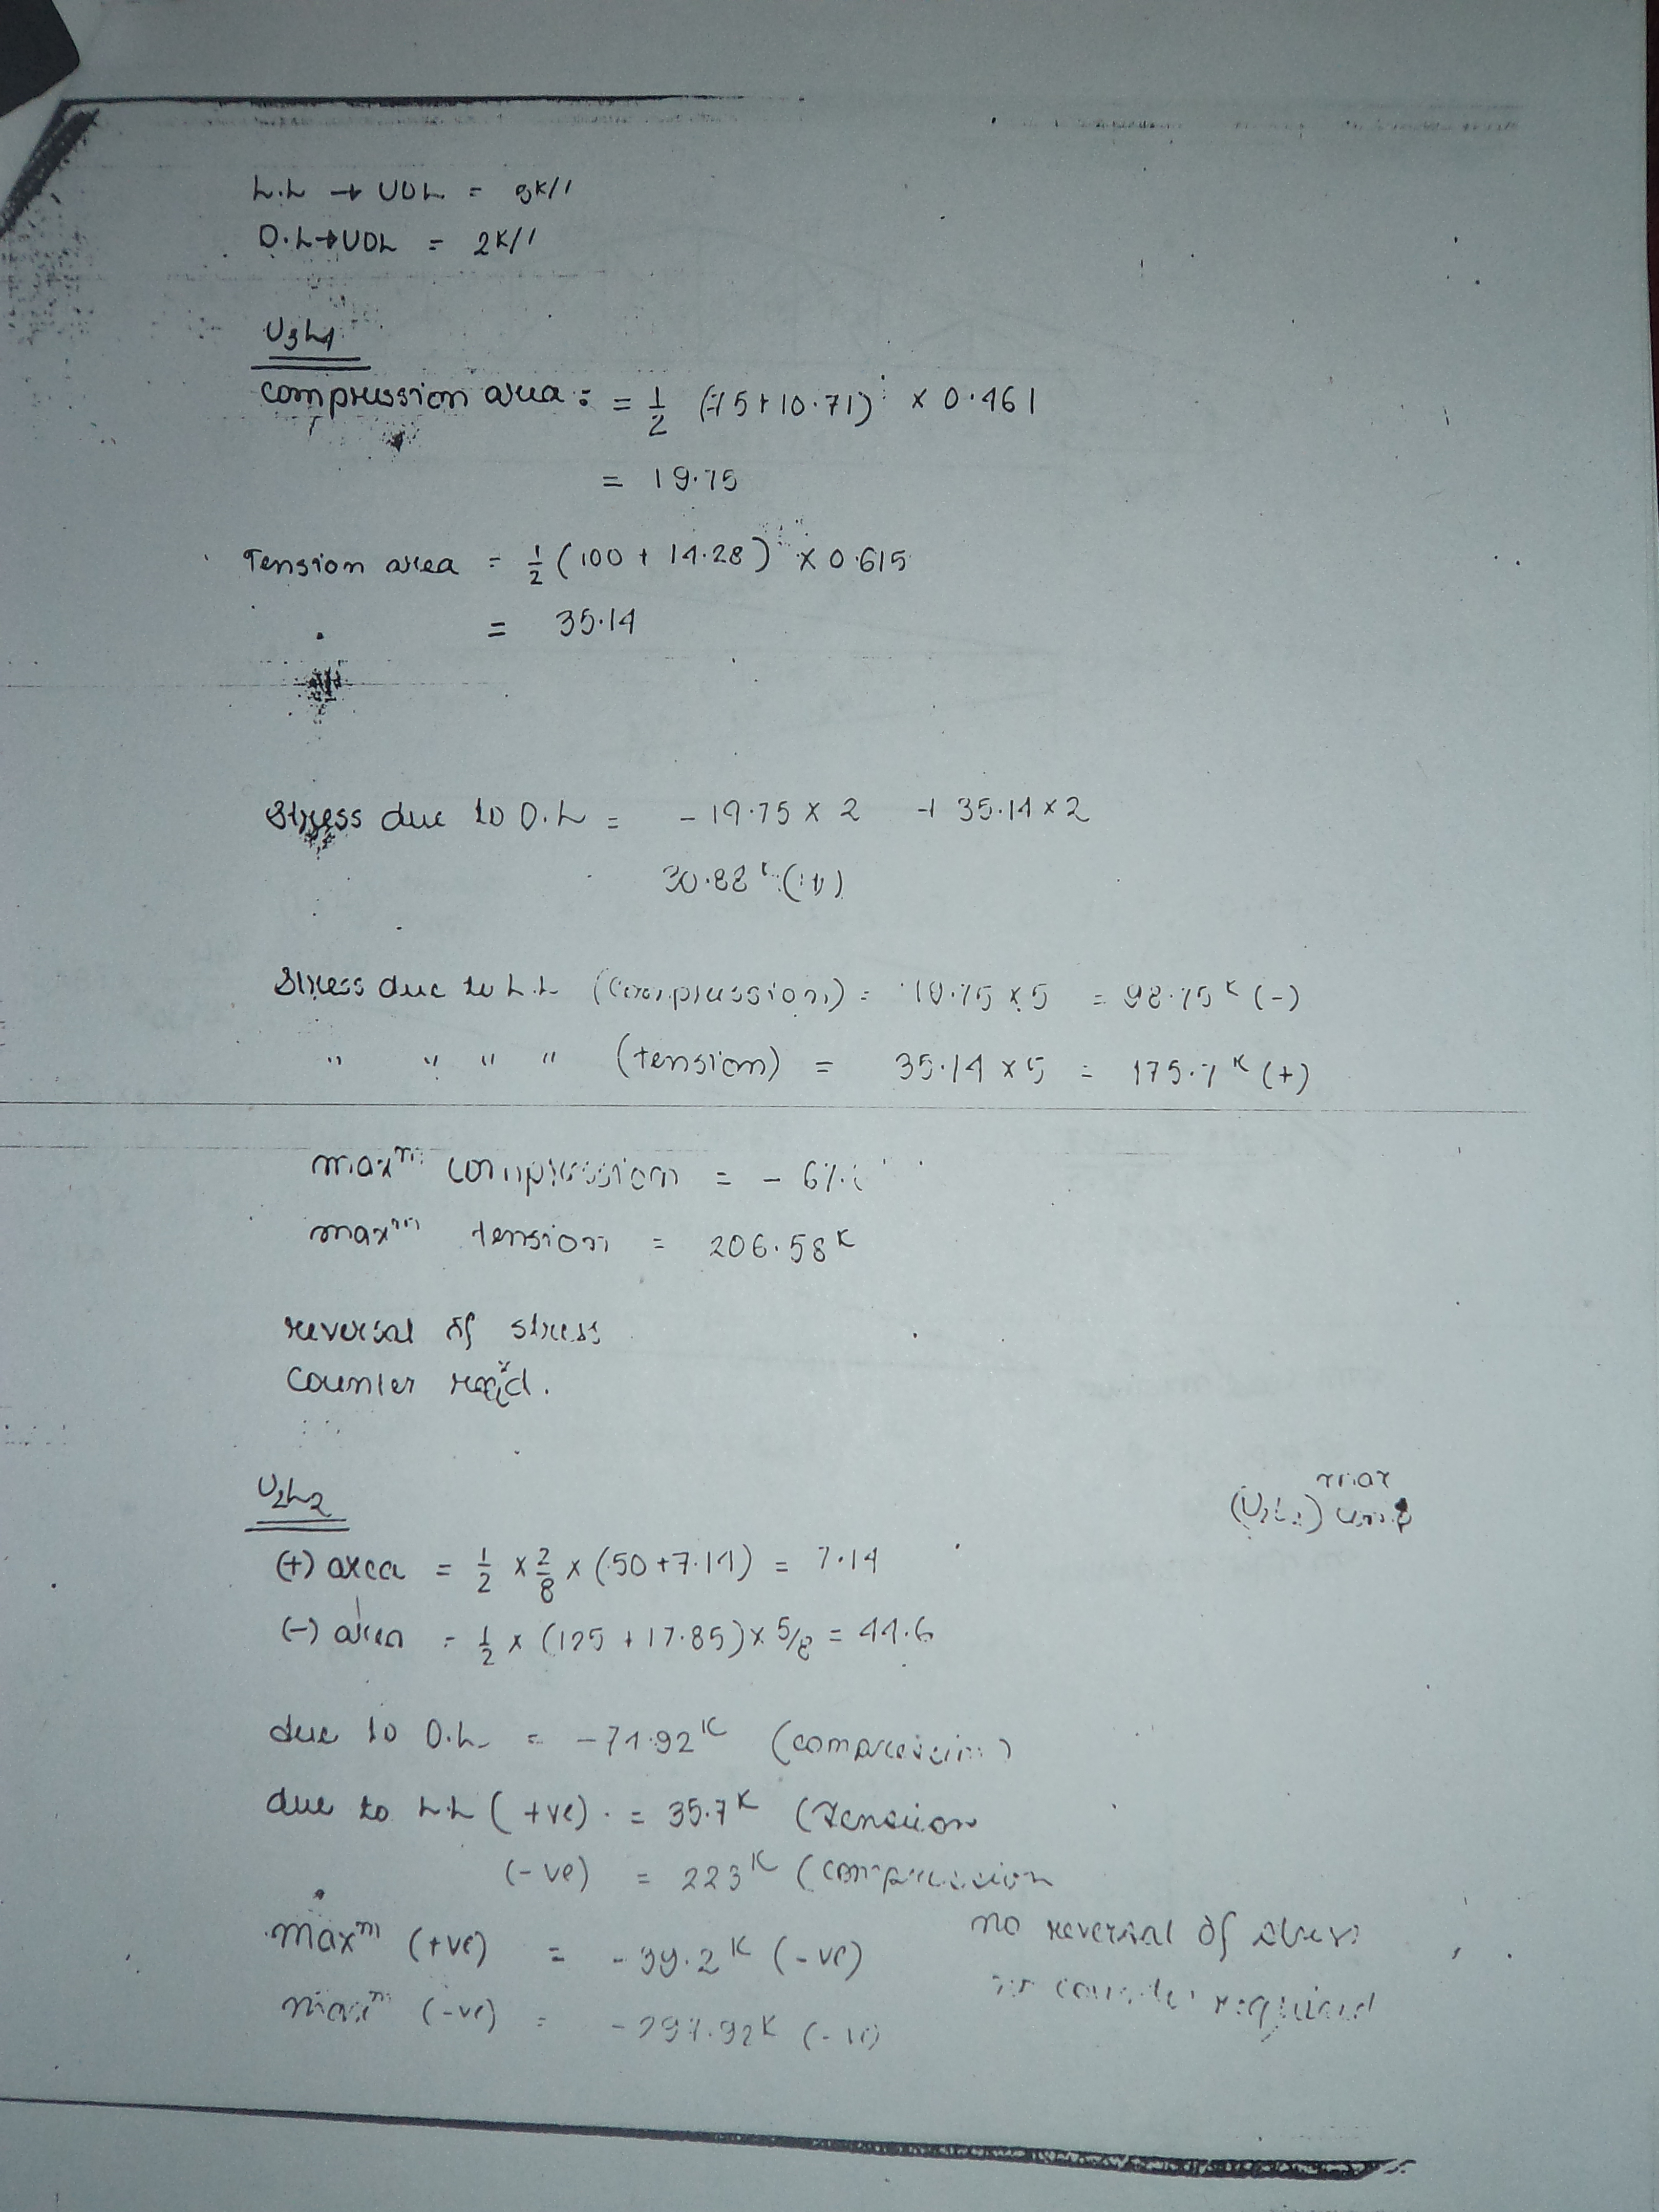 L.L → UDL = 5K/'
D.L → UDL = 2K/'
U3L4
compression area: = 1/2 (75+10.71) × 0.461
= 19.75
Tension area = 1/2 (100 + 14.28) × 0.615
= 35.14
Stress due to D.L = - 19.75 × 2 + 35.14 × 2
30.88 K (+)
Stress due to L.L (compression) = 19.75 × 5 = 98.75 K (-)
" " " " (tension) = 35.14 × 5 = 175.7 K (+)
maxm compression = - 67.
maxm tension = 206.58 K
reversal of stress
Counter req'd.
U2L2
(U2L2) max comp
(+) area = 1/2 × 2/8 × (50+7.14) = 7.14
(-) area = 1/2 × (125 + 17.85) × 5/8 = 44.6
due to D.L = -74.92 K (compression)
due to L.L (+ve) = 35.7 K (Tension
(-ve) = 223 K (compression
maxm (+ve) = -39.2 K (-ve) no reversal of stress
maxm (-ve) = -297.92 K (-ve) no counter required